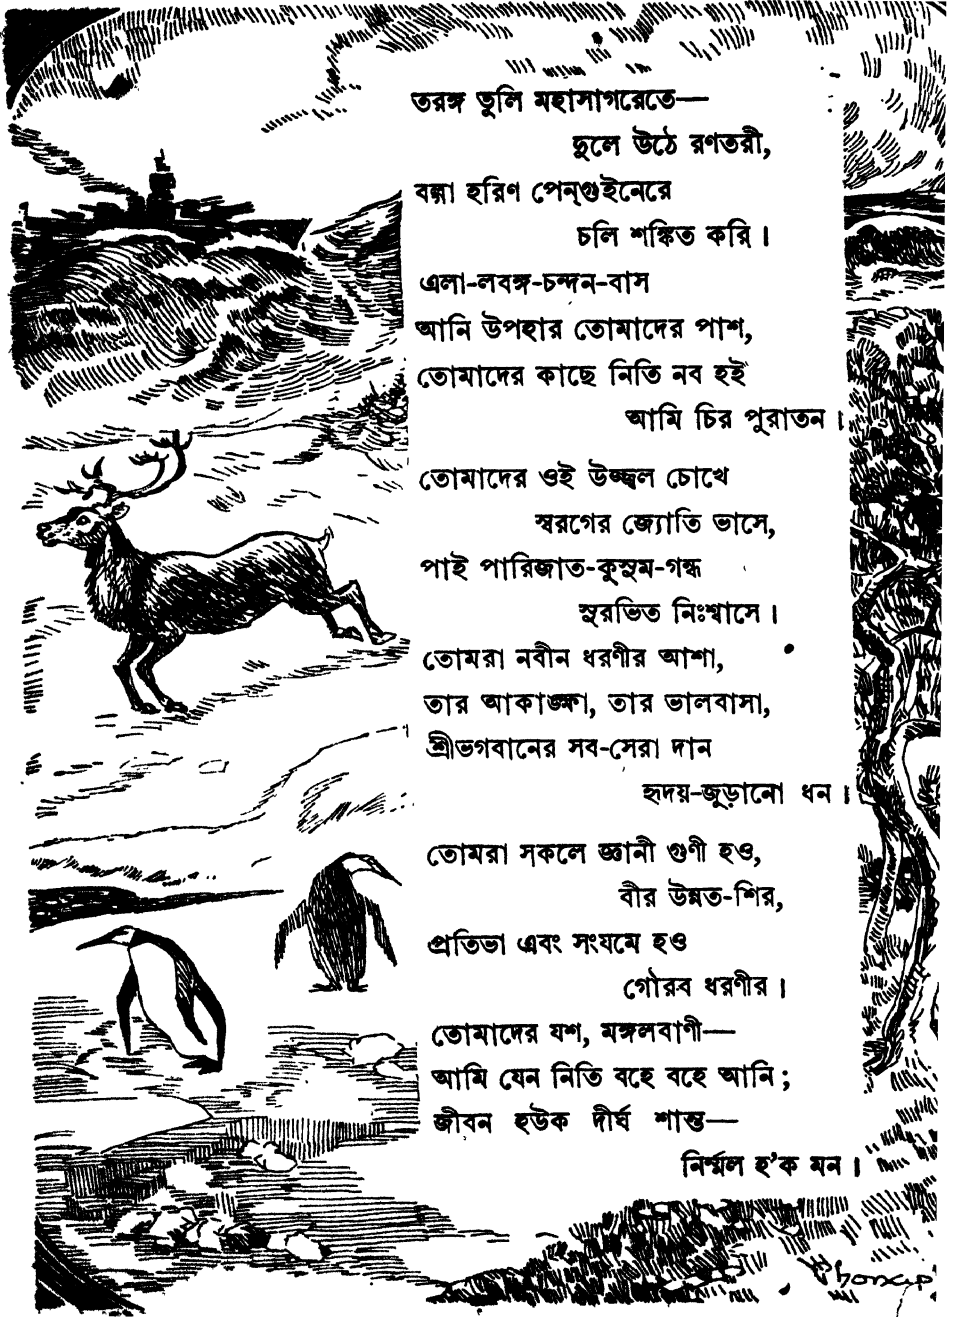 তরঙ্গ তুলি মহাসাগরেতে—
দুলে উঠে রণতরী,
বল্গা হরিণ পেন্‌গুইনেরে
চলি শঙ্কিত করি।
এলা-লবঙ্গ-চন্দন-বাস
আনি উপহার তোমাদের পাশ,
তোমাদের কাছে নিতি নব হই
আমি চির পুরাতন।
তোমাদের ওই উজ্জ্বল চোখে
স্বরগের জ্যোতি ভাসে,
পাই পারিজাত-কুসুম-গন্ধ
সুরভিত নিঃশ্বাসে।
তোমরা নবীন ধরণীর আশা,
তার আকাঙ্ক্ষা, তার ভালবাসা,
শ্রীভগবানের সব-সেরা দান
হৃদয়-জুড়ানো ধন।
তোমরা সকলে জ্ঞানী গুণী হও,
বীর উন্নত-শির,
প্রতিভা এবং সংযমে হও
গৌরব ধরণীর।
তোমাদের যশ, মঙ্গলবাণী—
আমি যেন নিতি বহে বহে আনি;
জীবন হউক দীর্ঘ শান্ত—
নির্ম্মল হ'ক মন।